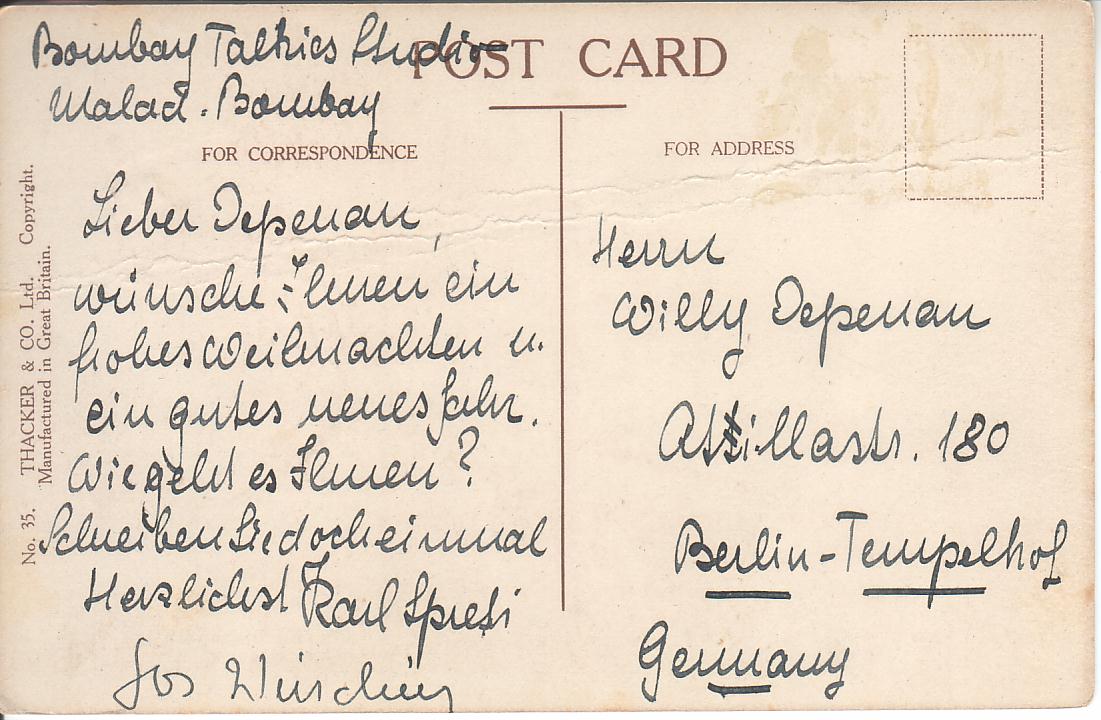 Bombay Talkies Studio
Malad. Bombay
POST CARD
FOR CORRESPONDENCE
FOR ADDRESS
No. 35. THACKER & CO. Ltd. Copyright.
Manufactured in Great Britain.
Lieber Depenau,
wünsche Ihnen ein
frohes Weihnachten u.
ein gutes neues Jahr.
Wie geht es Ihnen?
Schreiben Sie doch einmal
Herzlichst Karl Spreti
Jos Wirsching
Herrn
Willy Depenau
Attillastr. 180
Berlin-Tempelhof
Germany